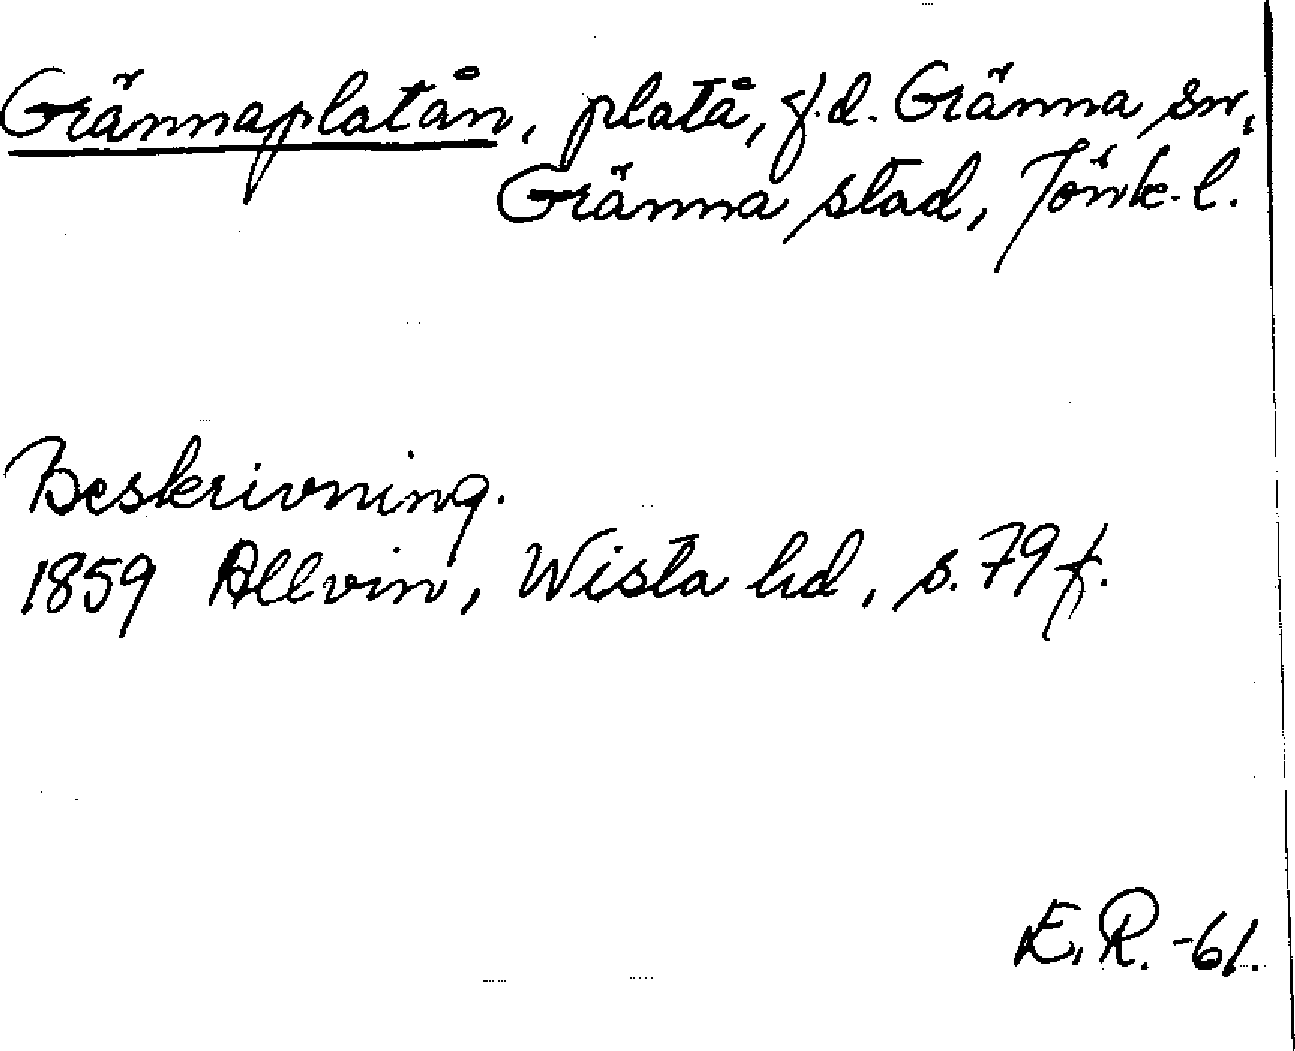 Grännaplatån, platå, f.d. Gränna sn,
Gränna stad, Jönk. l.
Beskrivning.
1859 Allvin, Wista hd, s. 79 f.
E.R. -61.